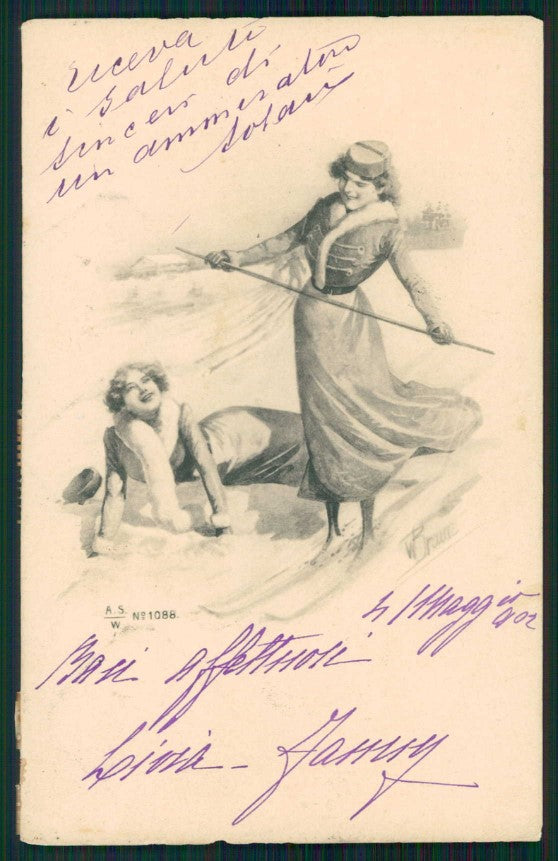 riceva
i saluti
sinceri di
un ammiratore
W Braun
A.S.
W No 1088.
4 Maggio
902
Baci affettuosi
Livia - Fanny